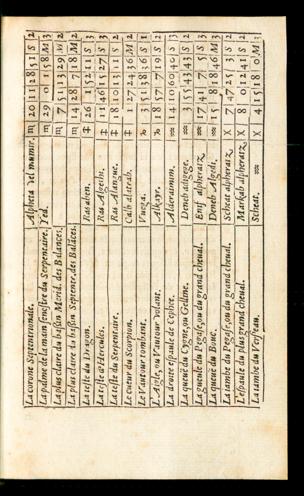 La corone Septentrionale. Alpheta vel munir. ♏ 20 11 28 51 S 2
La palme de la main senestre du Serpentaire. Yed. ♏ 29 0 1 58 M 3
La plus claire du bassin Merid. des Balances. ♏ 7 51 13 29 M 2
La plus claire du bassin Septentr. des Balāces. ♏ 14 28 7 18 M 2
La teste du Dragon. Ras aben. ♐ 26 1 52 11 S 3
La teste d'Hercules. Ras Algethi. ♐ 11 46 15 27 S 3
La teste du Serpentaire. Ras Alangue. ♐ 18 10 13 11 S 2
Le cueur du Scorpion. Calb alatrab. ♐ 1 27 24 36 M 2
Le Vautour tombant. Vuega. ♑ 3 51 38 36 S 1
L'Aigle, ou Vautour volant. Alkayr. ♑ 18 57 7 19 S 2
La droite espaule de Cephee. Alderaimim. ♒ 14 10 60 40 S 3
La queuë du Cygne, ou Gelline. Deneb adigege. ♒ 3 55 43 43 S 2
La gueule du Pegase, ou du grand cheual. Enif alpheratz. ♒ 17 41 7 5 S 3
La queuë du Bouc. Deneb Algedi. ♒ 15 8 18 46 M 3
La iambe du Pegase, ou du grand cheual. Scheat alpheratz. X 7 47 25 3 S 2
L'espaule du plus grand cheual. Markab alpheratz. X 8 0 12 41 S 2
La iambe du Verseau. Scheat. ♒ X 4 15 18 0 M 3